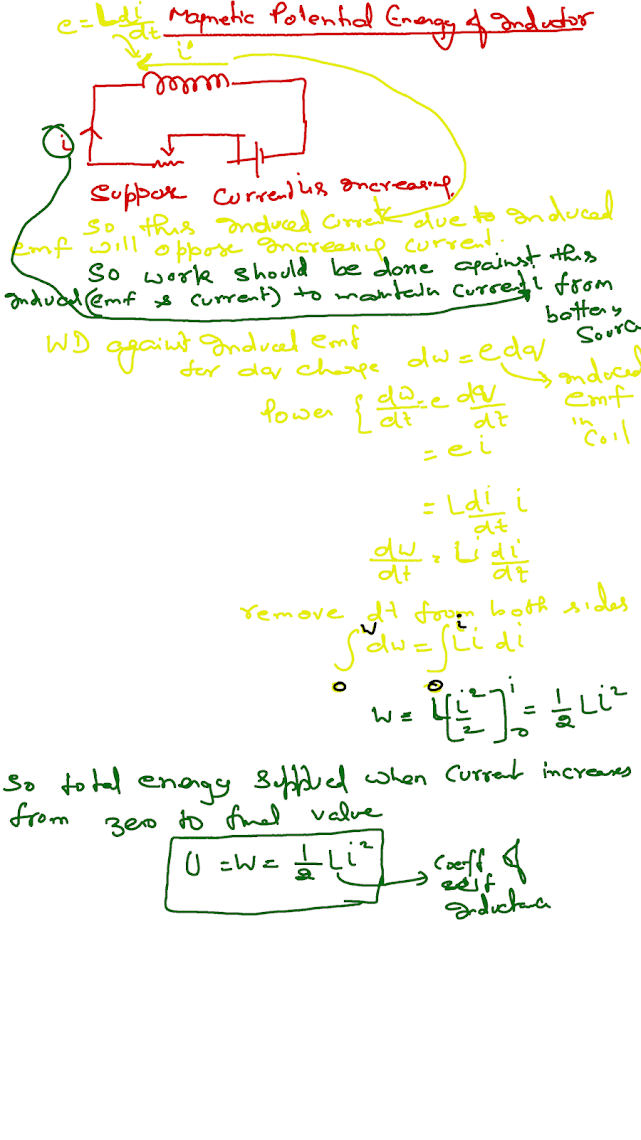 e = L di/dt Magnetic Potential Energy of Inductor
i'
i
Suppose Current is increasing
So this induced Current due to induced
emf will oppose increasing current.
So work should be done against this
induced (emf & current) to maintain current i from
battery
Source
WD against induced emf
for dq charge dw = e dq
induced
emf
in
coil
Power { dw/dt = e dq/dt
= e i
= L di/dt i
dw/dt = Li di/dt
remove dt from both sides
∫₀ᵂ dw = ∫₀ⁱ Li di
W = L[i²/2]₀ⁱ = 1/2 Li²
So total energy supplied when current increases
from zero to final value
U = W = 1/2 Li²
Coeff of
self
inductance